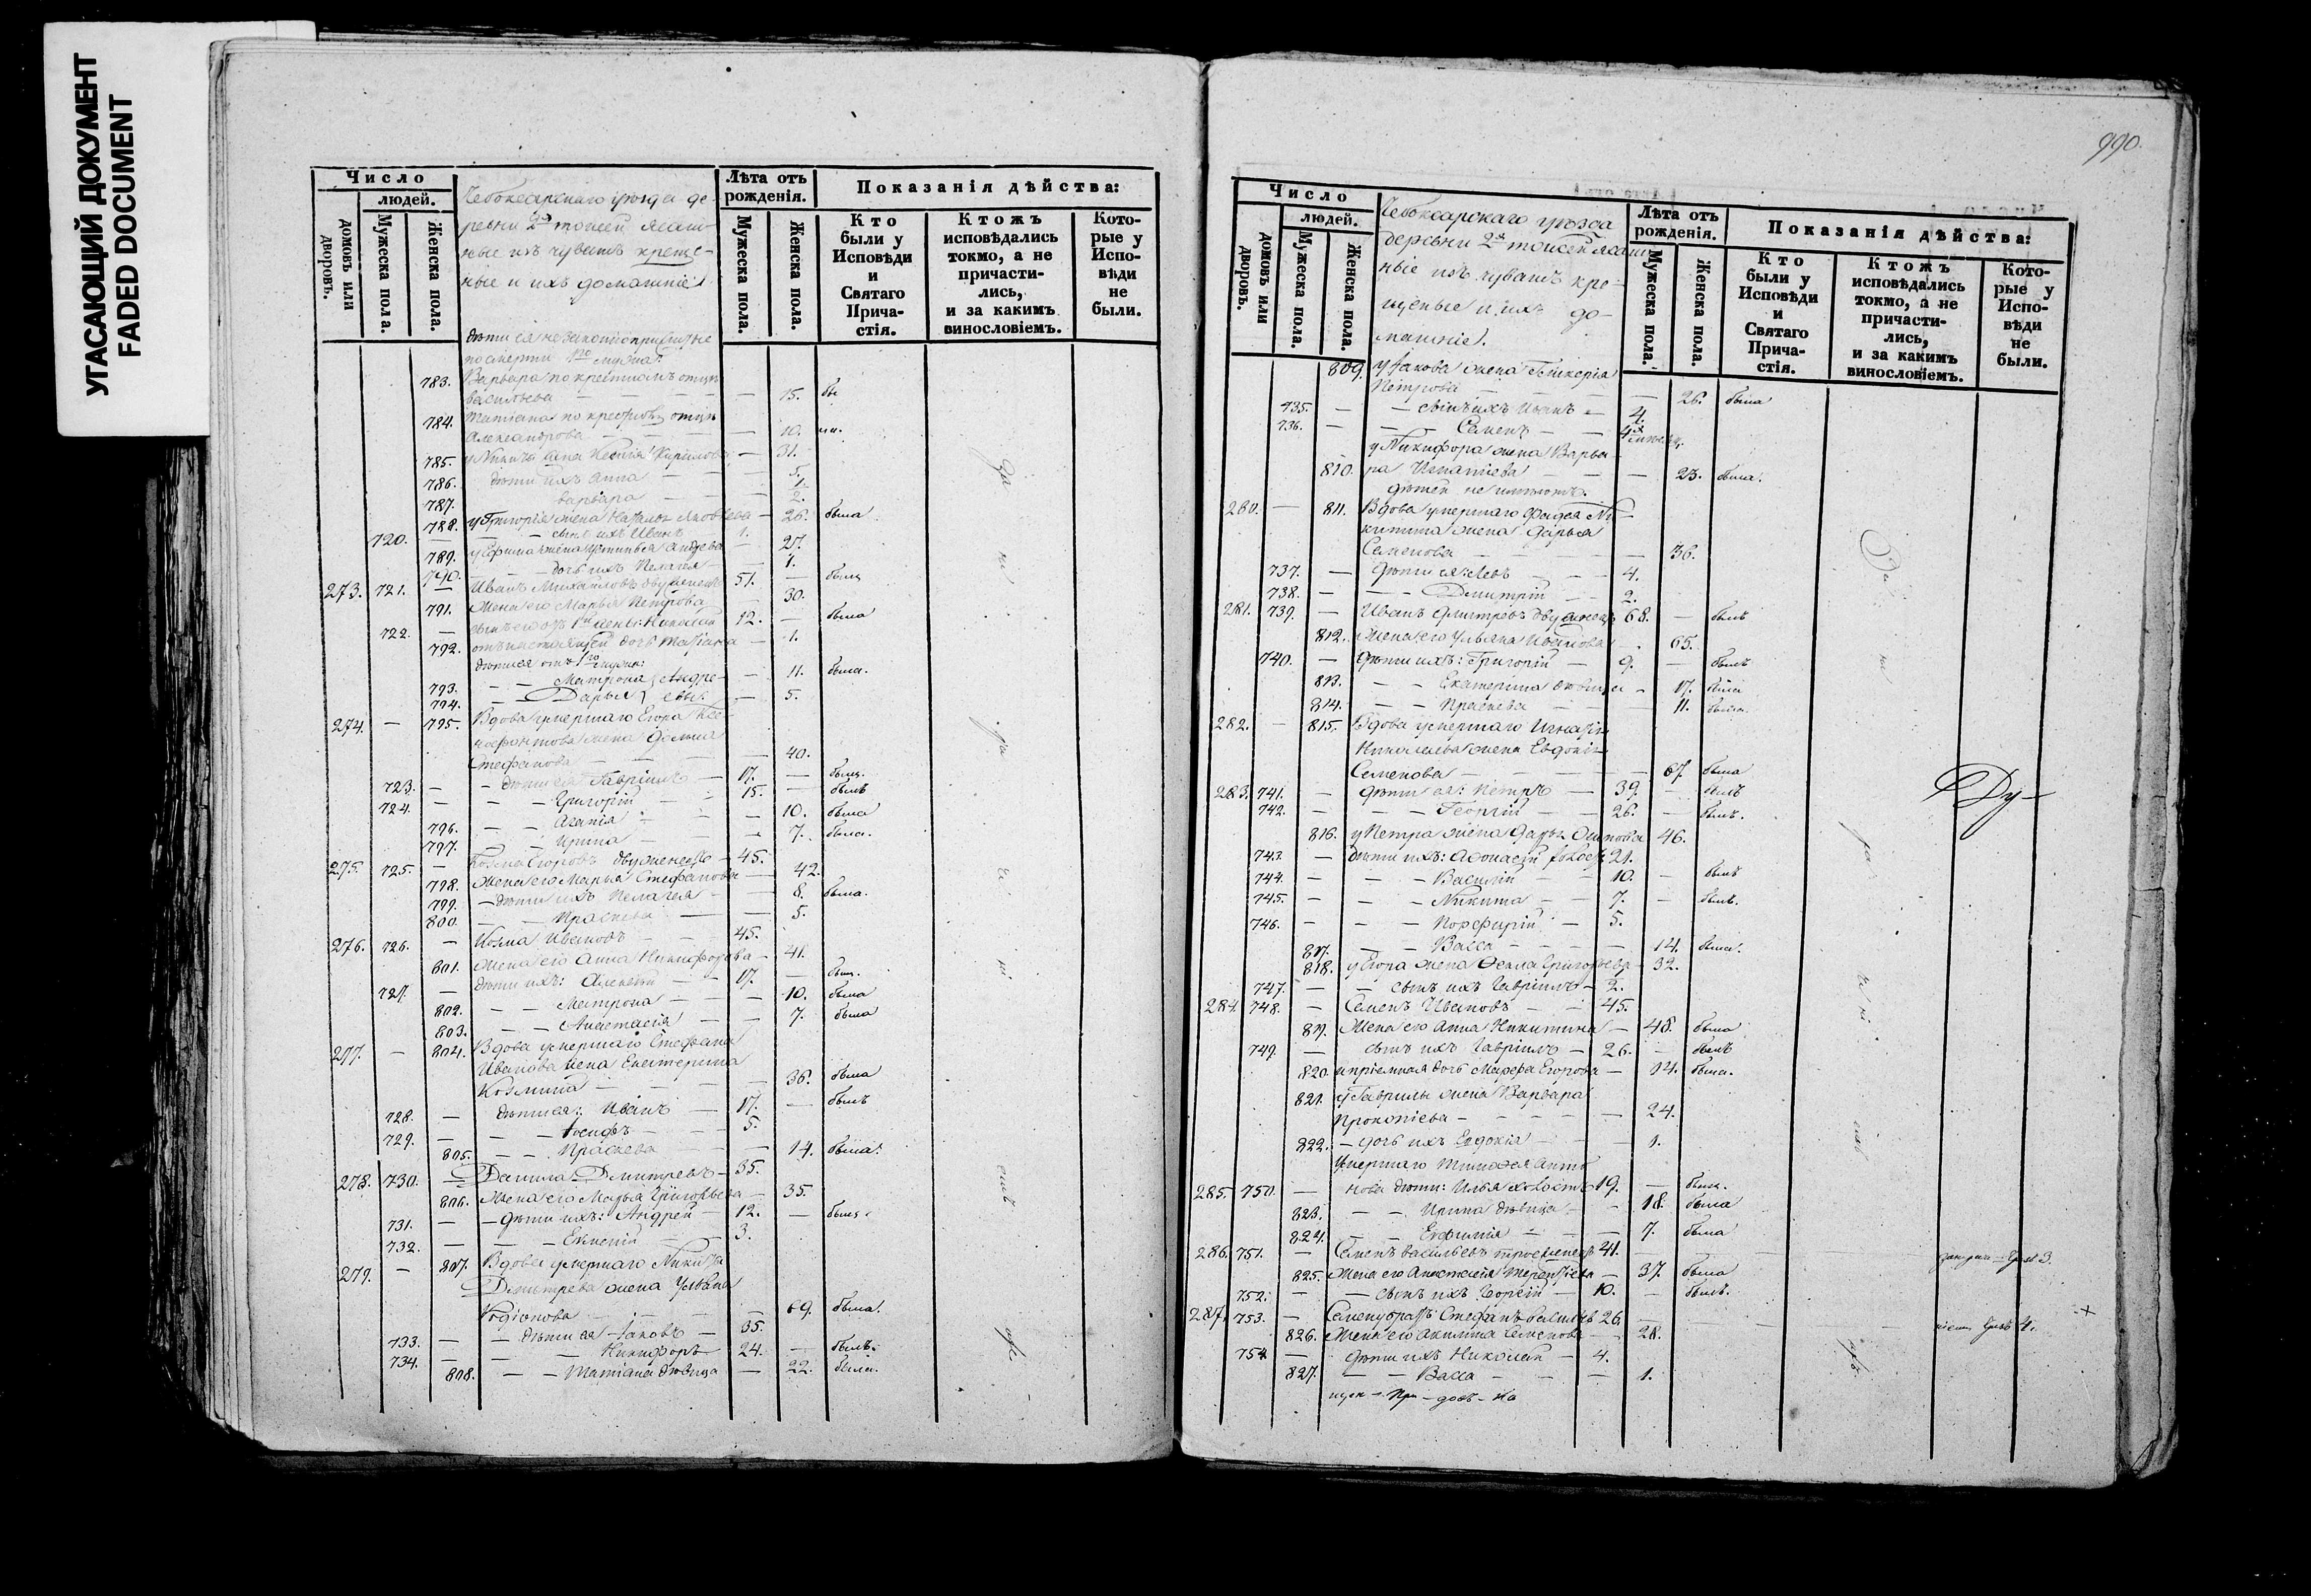 УГАСАЮЩИЙ ДОКУМЕНТ
FADED DOCUMENT
Число
людей.
домовъ или дворовъ.
Мужеска пола.
Женска пола.
Чебоксарскаго уѣзда де-
ревни 2й тоисей ясаш-
ные изъ чувашъ креще-
ные и ихъ домашніе
Лѣта отъ рожденія.
Мужеска пола.
Женска пола.
Показанія дѣйства:
Кто были у Исповѣди и Святаго Прича-стія.
Ктожъ исповѣдались токмо, а не причасти-лись, и за какимъ винословіемъ.
Кото-рые у Испо-вѣди не были.
783. Варвара по крестномъ отцѣ
васильева — 15. бы
784. Татіана по крестномъ отцѣ
Александрова — 10. ли.
785. у Никиты жена Кирилова — 31.
786. дѣти ихъ Анна — 5.
787. варвара — 2.
788. у Григорія жена Наталья Яковлева — 26. была
720. — сынъ ихъ Иванъ 1.
789. у Ефима жена Устинья Андреева — 27.
790. — дочь ихъ Пелагея — 1.
273. 721. — Иванъ Михайловъ двуженецъ 51. — былъ
791. Жена его Марья Петрова 30.
722. — сынъ его отъ 1й жены: Николай 12. — была
792. отъ настоящей дочь Татіана — 1.
дѣти ея отъ 1го мужа:
793. — — Матрона Андре- — 11. была.
794. — Дарья евы — 5.
274. — 795. Вдова умершаго Егора Ксе-
нофонтова жена
Стефанова — 40.
723. — — дѣти ея Гаврiилъ — 17. — былъ.
724. — — — Григорій — 15. — былъ
796. — — Агапія — 10. была
797. — — Ирина — 7. была.
275. 725. — Козма Егоровъ двуженецъ — 45.
798. Жена его Марья Стефанова — 42.
799. — дѣти ихъ Пелагея — 8. была.
800. — — Праскева — 5.
276. 726. — Козма Ивановъ — 45.
801. Жена его Анна Никифорова — 41.
727. — дѣти ихъ: Алексѣй — 17. — былъ.
802. — — Матрона — 10. была
803. — — Анастасія — 7. была
277. — 804. Вдова умершаго Стефана
Иванова жена Екатерина
Козмина — 36. была
728. — дѣти ея: Иванъ — 17. — былъ
729. — — — Іосифъ — 5.
805. — — Праскева — 14. была.
278. 730. — Данила Дмитревъ — 35.
806. Жена его Марья Григорьева — 35.
731. — — дѣти ихъ: Андрей — 12. — былъ.
732. — — — Евменій — 3.
279. — 807. Вдова умершаго Никиты
Дмитрева жена Ульяна
Родіонова — 69. была.
733. — — дѣти ея Іаковъ — 35.
734. — — — Никифоръ 24. — былъ.
808. — — Татіана дѣвица — 22. была.
990.
Число
людей.
домовъ или дворовъ.
Мужеска пола.
Женска пола.
Чебоксарскаго уѣзда
деревни 2й тоисей ясаш-
ные изъ чувашъ кре-
щеные и ихъ до-
машніе.
Лѣта отъ рожденія.
Мужеска пола.
Женска пола.
Показанія дѣйства:
Кто были у Исповѣди и Святаго Прича-стія.
Ктожъ исповѣдались токмо, а не причасти-лись, и за какимъ винословіемъ.
Кото-рые у Испо-вѣди не были.
809. у Іакова жена Гликерія
Петрова — 26. была
735. — — сынъ ихъ Иванъ — 4.
736. — — Семенъ —
у Никифора жена Варва-
810. ра Игнатіева — 23. была.
дѣтей не имѣютъ.
280. — 811. Вдова умершаго Фадея Ни-
китина жена Дарья
Семенова — 36.
737. — дѣти ея: Левъ — 4.
738. — — Дмитрій — 2.
281. 739. — Иванъ Дмитревъ двуженецъ 68. — былъ
812. Жена его Ульяна Иванова 65.
740. — дѣти ихъ: Григорій — 9. — былъ
813. — — Екатерина дѣвица — 17. была
814. — — Праскева — 11. была.
282. — 815. Вдова умершаго Игнатія
Николаева жена Евдокія
Семенова — 67. была
283. 741. — дѣти ея: Петръ — 39. — былъ
742. — — — Георгій — 26. — былъ.
816. у Петра жена Дарья Осипова 46.
743. — дѣти ихъ: Афонасій холостъ 21.
744. — — — Василій — 10. — былъ
745. — — — Никита — 7. — былъ.
746. — — — Порфирій — 5.
817. — — Васса — 14. была.
818. у Егора жена Фекла Григорьева — 32.
747. — — сынъ ихъ Гавріилъ — 2.
284. 748. — Семенъ Ивановъ — 45.
819. Жена его Анна Никитина — 45. была
749. — сынъ ихъ Гавріилъ — 26. — былъ
820. и пріемная дочь Марфа Егорова — 14. была.
821. у Гаврилы жена Варвара
Прокопіева — 24.
822. — дочь ихъ Евдокія — 1.
Умершаго Тимофея Анто-
285. 750. — нова дѣти: Илья холостъ 19. — былъ.
823. — — Ирина дѣвица — 18. была
824. — — Евфимія — 7. была
286. 751. — Семенъ васильевъ троеженецъ 41.
825. Жена его Анастасія Терентіева — 37. была
752. — — сынъ ихъ Георгій — 10. — былъ.
287. 753. — Семену братъ Стефанъ васильевъ 26.
826. Жена его Акилина Семенова — 28.
754. — дѣти ихъ Николай — 4.
827. — — Васса — 1.